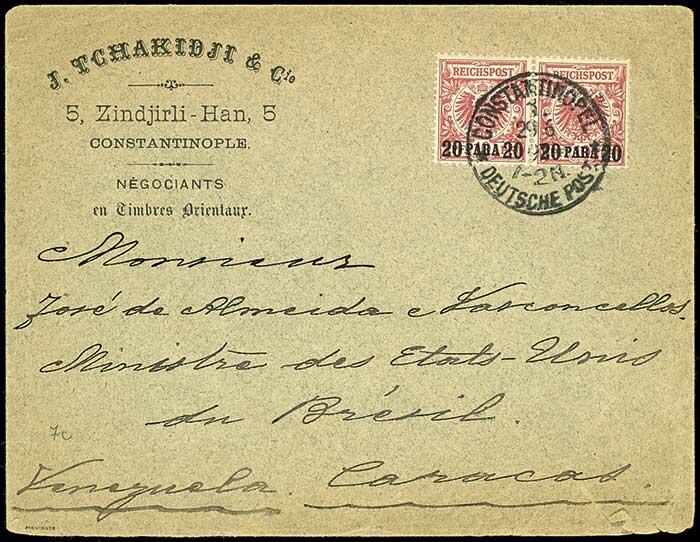 J. TCHAKIDJI & Cie
5, Zindjirli-Han, 5
CONSTANTINOPLE.
NÉGOCIANTS
en Timbres Orientaux.
REICHSPOST REICHSPOST
20 PARA 20 20 PARA 20
CONSTANTINOPEL
3
29 6
1-2N.
DEUTSCHE POST
Monsieur
José de Almeida e Vasconcellos.
Ministre des Etats-Unis
du Brésil.
70
Venezuela. Caracas.